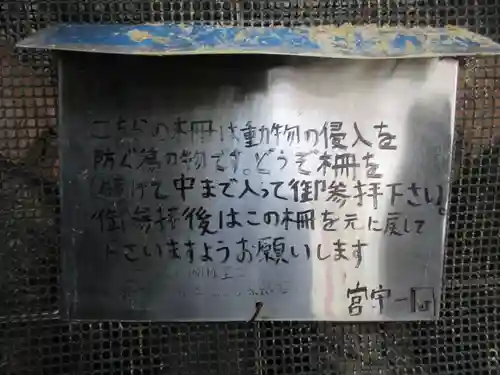 こちらの柵は動物の侵入を
防ぐ為の物です。どうぞ柵を
開けて中まで入って御参拝下さい。
御参拝後はこの柵を元に戻して
下さいますようお願いします
宮守一同